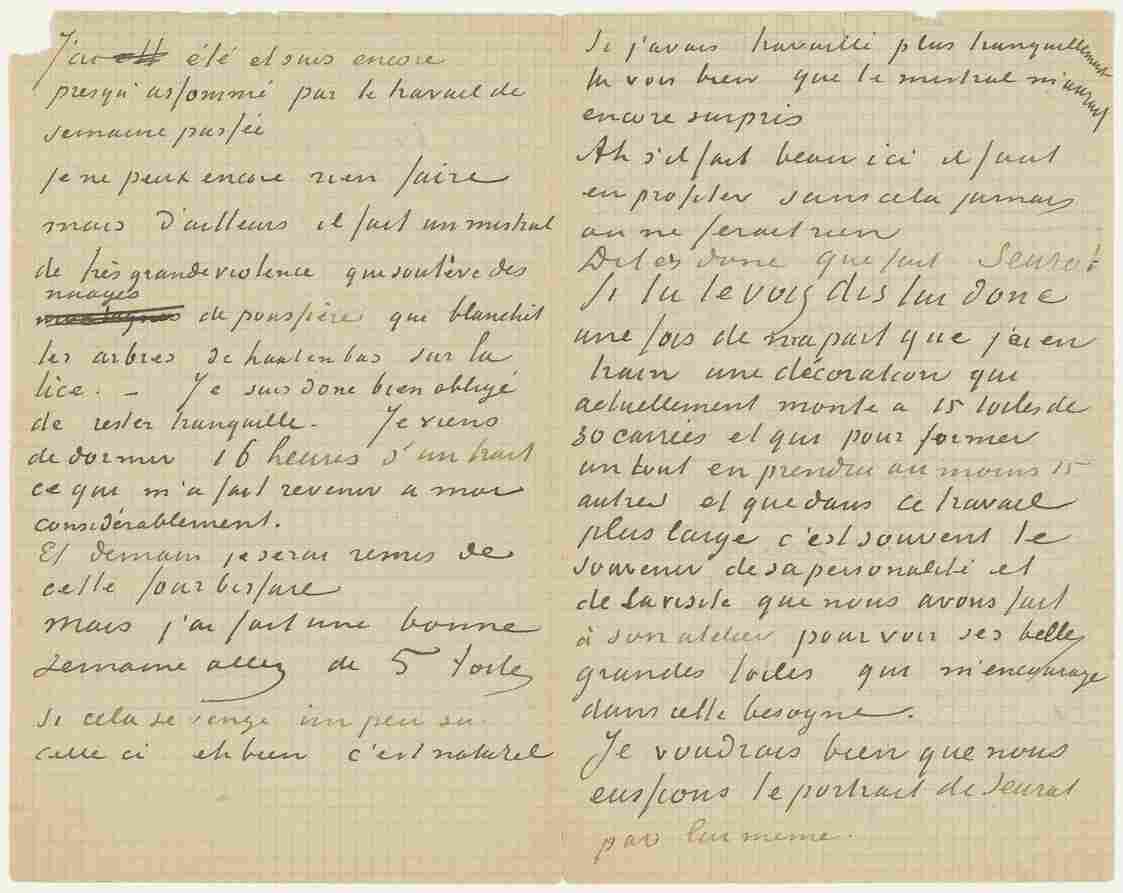 J'ai été et suis encore
presqu'assommé par le travail de
semaine passée
je ne peux encore rien faire
mais d'ailleurs il fait un mistral
de très grande violence que soulève des
nuages
de poussière que blanchit
les arbres de haut en bas sur la
lice. – Je suis donc bien obligé
de rester tranquille. Je viens
de dormir 16 heures d'un trait
ce qui m'a fait revenir a moi
considérablement.
Et demain je serai remis de
cette fourbissure
mais j'ai fait une bonne
semaine allez de 5 toiles
si cela se venge un peu su
celle ci eh bien c'est naturel
Si j'avais travaillé plus tranquillement
tu vois bien que le mistral m'aurait
encore surpris
Ah s'il fait beau ici il faut
en profiter sans cela jamais
on ne ferait rien
Dites donc que fait Seurat
Si tu le vois dis lui donc
une fois de ma part que j'ai en
train une décoration qui
actuellement monte a 15 toiles de
30 carrées et qui pour former
un tout en prendra au moins 15
autres et que dans ce travail
plus large c'est souvent le
souvenir de sa personalité et
de la visite que nous avons fait
à son atelier pour voir ses belles
grandes toiles qui m'encourage
dans cette besogne.
Je voudrais bien que nous
eussions le portrait de Seurat
par lui meme.